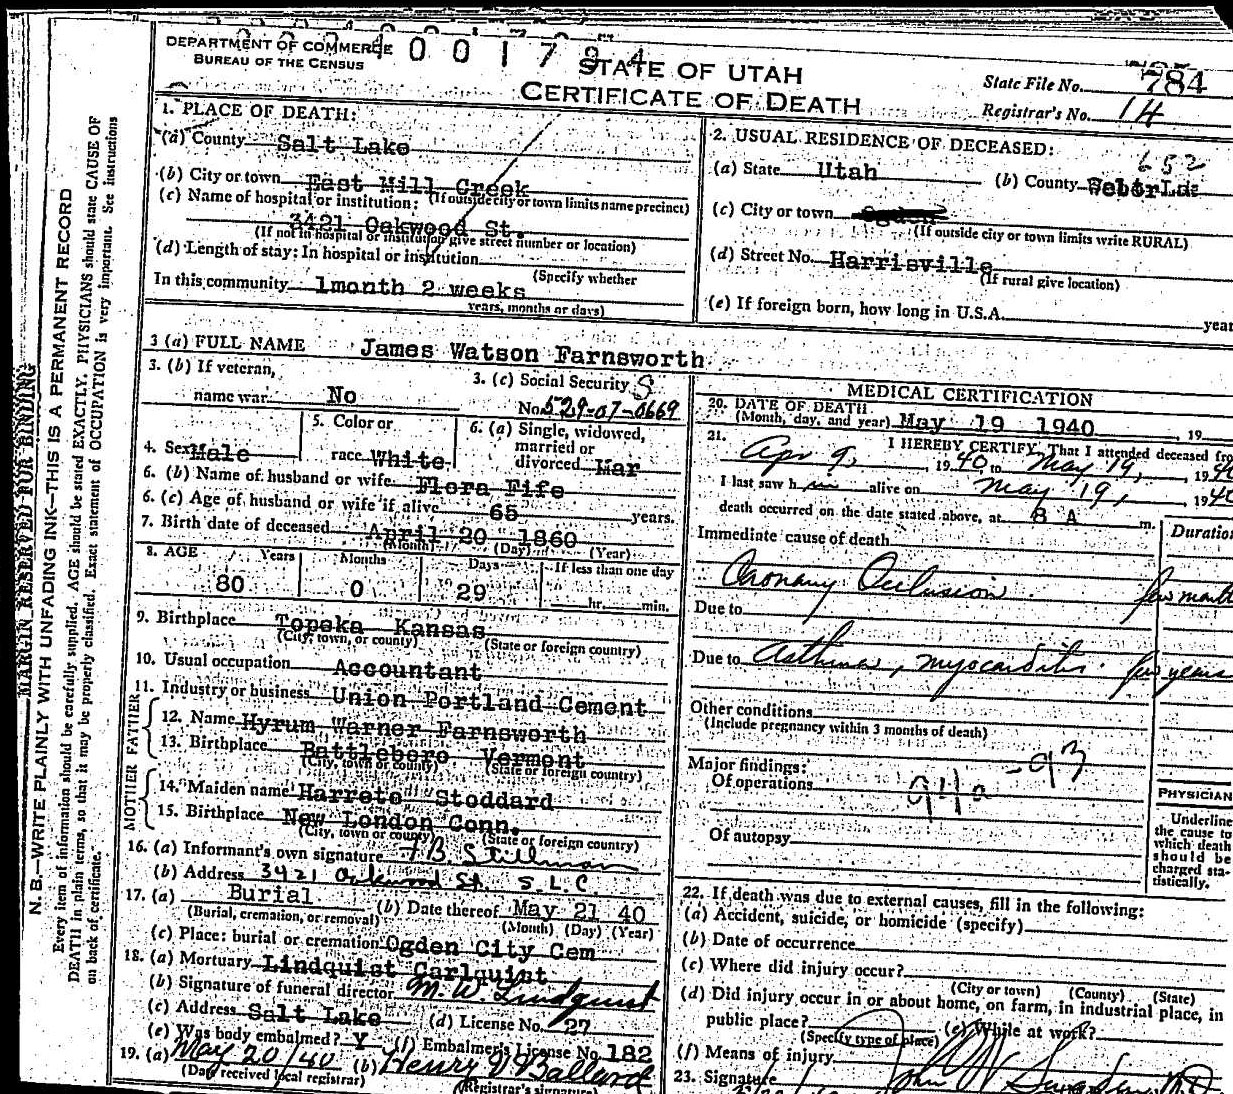 DEPARTMENT OF COMMERCE
BUREAU OF THE CENSUS
STATE OF UTAH
CERTIFICATE OF DEATH
State File No. 784
Registrar's No. 14
1. PLACE OF DEATH:
(a) County Salt Lake
(b) City or town East Mill Creek
(If outside city or town limits name precinct)
(c) Name of hospital or institution:
3421 Oakwood St.
(If not in hospital or institution give street number or location)
(d) Length of stay: In hospital or institution
(Specify whether
In this community 1month 2 weeks
years, months or days)
2. USUAL RESIDENCE OF DECEASED:
652
(a) State Utah (b) County Weber
(c) City or town Ogden
(If outside city or town limits write RURAL)
(d) Street No. Harrisville
(If rural give location)
(e) If foreign born, how long in U.S.A. year
3 (a) FULL NAME James Watson Farnsworth
3. (b) If veteran,
name war No
3. (c) Social Security
No. 529-07-0669
4. Sex Male
5. Color or
race White
6. (a) Single, widowed,
married or
divorced Mar
6. (b) Name of husband or wife Flora Fife
6. (c) Age of husband or wife if alive 65 years.
7. Birth date of deceased April 20 1860
(Month) (Day) (Year)
8. AGE Years Months Days If less than one day
80 0 29 hr. min.
9. Birthplace Topeka Kansas
(City, town, or county) (State or foreign country)
10. Usual occupation Accountant
11. Industry or business Union Portland Cement
FATHER
12. Name Hyrum Warner Farnsworth
13. Birthplace Battleboro Vermont
(City, town or county) (State or foreign country)
MOTHER
14. Maiden name Harrete Stoddard
15. Birthplace New London Conn.
(City, town or county) (State or foreign country)
16. (a) Informant's own signature F B. Stillman
(b) Address 3421 Oakwood St. S.L.C.
17. (a) Burial (b) Date thereof May 21 40
(Burial, cremation, or removal) (Month) (Day) (Year)
(c) Place: burial or cremation Ogden City Cem
18. (a) Mortuary Lindquist Carlquist
(b) Signature of funeral director M. W. Lindquist
(c) Address Salt Lake (d) License No. 27
(e) Was body embalmed? Y (f) Embalmer's License No. 182
19. (a) May 20/40 (b) Henry V Ballard
(Date received local registrar) (Registrar's signature)
MEDICAL CERTIFICATION
20. DATE OF DEATH
(Month, day, and year) May 19 1940, 19
21. I HEREBY CERTIFY, That I attended deceased fro
Apr 9, 1940 to May 19, 1940
I last saw him alive on May 19, 1940
death occurred on the date stated above, at 8 A m.
Duration
Immediate cause of death
Coronary Occlusion few month
Due to
Due to Asthma, myocarditis few years
Other conditions
(Include pregnancy within 3 months of death)
Major findings:
Of operations
94a - 93
Of autopsy
PHYSICIAN
Underline
the cause to
which death
should be
charged sta-
tistically.
22. If death was due to external causes, fill in the following:
(a) Accident, suicide, or homicide (specify)
(b) Date of occurrence
(c) Where did injury occur?
(City or town) (County) (State)
(d) Did injury occur in or about home, on farm, in industrial place, in
public place? (e) While at work?
(Specify type of place)
(f) Means of injury
23. Signature John
MARGIN RESERVED FOR BINDING
N. B.—WRITE PLAINLY WITH UNFADING INK—THIS IS A PERMANENT RECORD
Every item of information should be carefully supplied. AGE should be stated EXACTLY. PHYSICIANS should state CAUSE OF
DEATH in plain terms, so that it may be properly classified. Exact statement of OCCUPATION is very important. See instructions
on back of certificate.